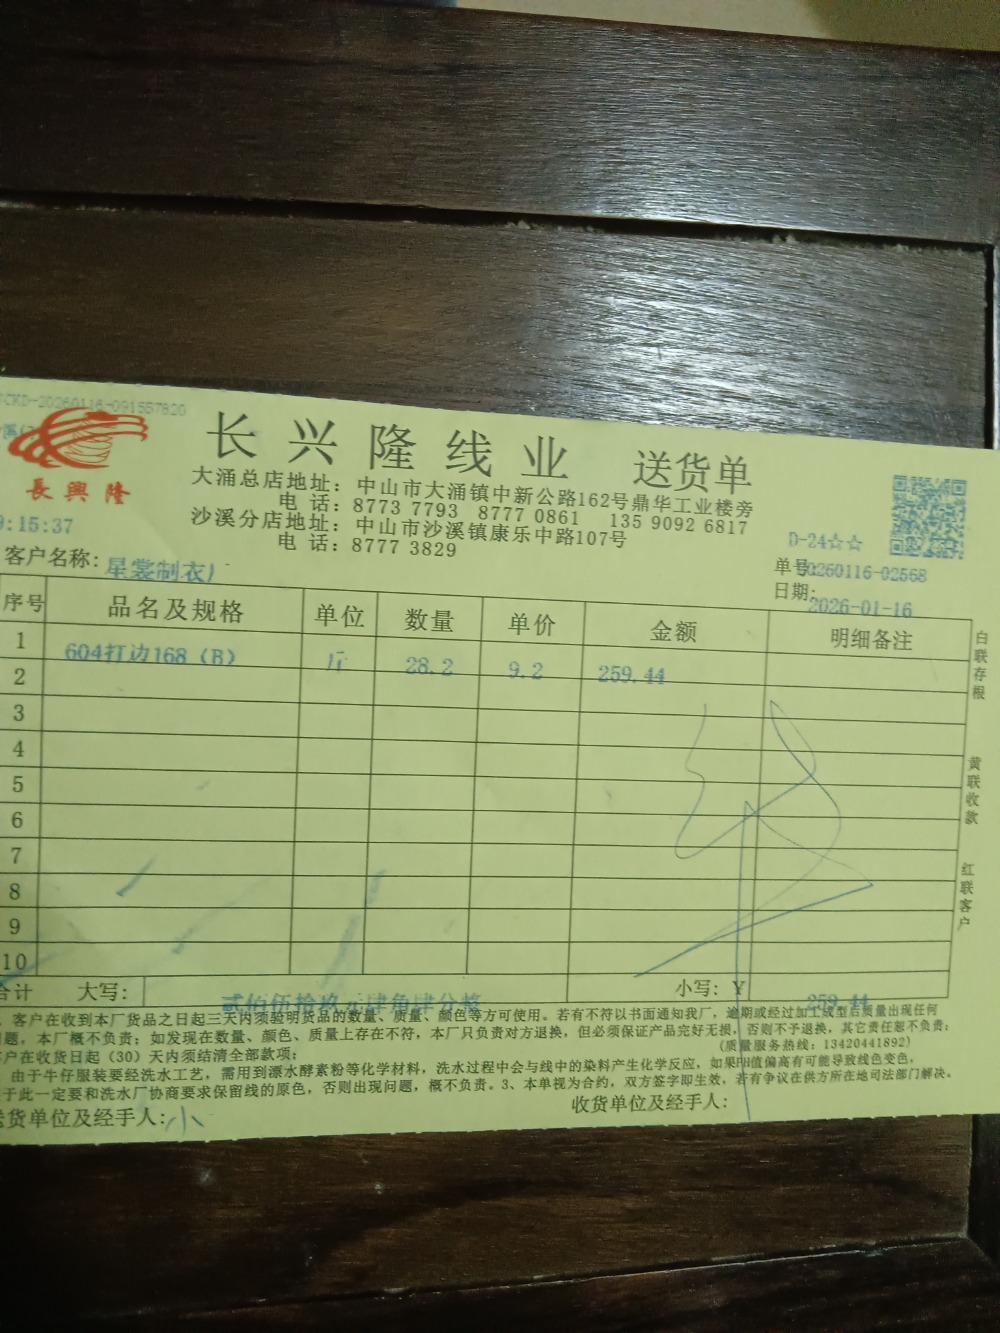 CKD-20260116-091557820
長興隆
9:15:37
长兴隆线业 送货单
大涌总店地址：中山市大涌镇中新公路162号鼎华工业楼旁
电 话：8773 7793 8777 0861 135 9092 6817
沙溪分店地址：中山市沙溪镇康乐中路107号
电 话：8777 3829
D-24☆☆
客户名称：星裳制衣厂
单号:20260116-02568
日期:2026-01-16
序号 品名及规格 单位 数量 单价 金额 明细备注
1 604打边168（B） 斤 28.2 9.2 259.44
2
3
4
5
6
7
8
9
10
合计 大写：贰佰伍拾玖元肆角肆分整 小写：￥ 259.44
白联存根
黄联收款
红联客户
客户在收到本厂货品之日起三天内须验明货品的数量、质量、颜色等方可使用。若有不符以书面通知我厂，逾期或经过加工成型后质量出现任何
问题，本厂概不负责；如发现在数量、颜色、质量上存在不符，本厂只负责对方退换，但必须保证产品完好无损，否则不予退换，其它责任恕不负责；
客户在收货日起（30）天内须结清全部款项；
（质量服务热线：13420441892）
由于牛仔服装要经洗水工艺，需用到漂水酵素粉等化学材料，洗水过程中会与线中的染料产生化学反应，如果PH值偏高有可能导致线色变色，
于此一定要和洗水厂协商要求保留线的原色，否则出现问题，概不负责。3、本单视为合约，双方签字即生效，若有争议在供方所在地司法部门解决。
送货单位及经手人：小
收货单位及经手人：